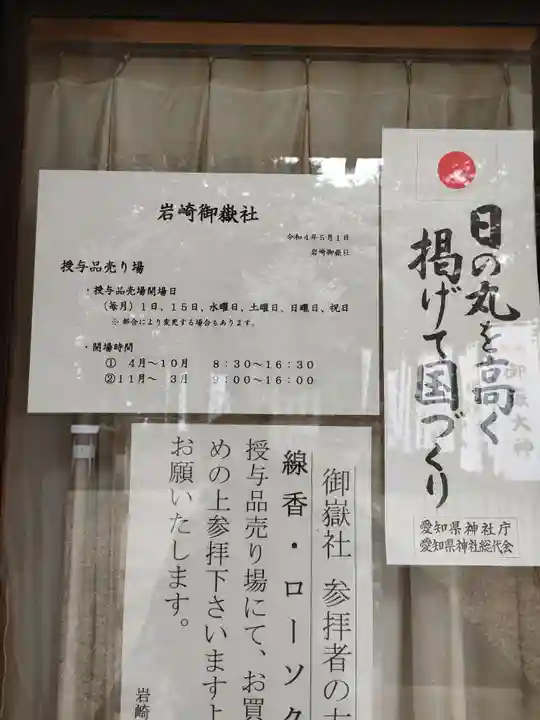 岩崎御嶽社
令和4年5月1日
岩崎御嶽社
授与品売り場
・授与品売場開場日
(毎月)1日、15日、水曜日、土曜日、日曜日、祝日
※ 都合により変更する場合もあります。
・開場時間
① 4月～10月 8:30～16:30
②11月～ 3月 9:00～16:00
日の丸を高く
掲げて国づくり
愛知県神社庁
愛知県神社総代会
御嶽社 参拝者の
線香・ローソク
授与品売り場にて、お買
めの上参拝下さいます
お願いたします。
岩崎